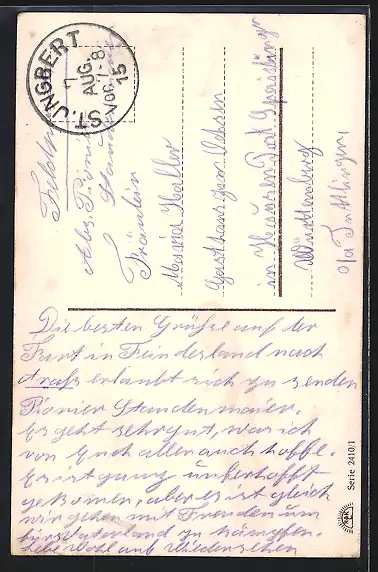 ST. INGBERT
7
AUG.
VO6. 7-8
15
Feldpo
Abs. Pionier
Standenmaier
Fräulein
Maria Haller
Gasthaus zum Ochsen
in Hausen Post Spaichingen
Württemberg
O/A Tuttlingen
Die besten Grüsse auf der
Fart in Feindesland nach
erlaubt sich zu senden
Pionier Standenmaier.
Es geht sehr gut, was ich
von Euch allen auch hoffe.
Es ist ganz unferhofft
gekomen, aber es ist gleich
wir gehen mit Freuden um
fürs Vaterland zu kämpfen.
Lebe Wohl auf Wiedersehen
Serie 2410/1